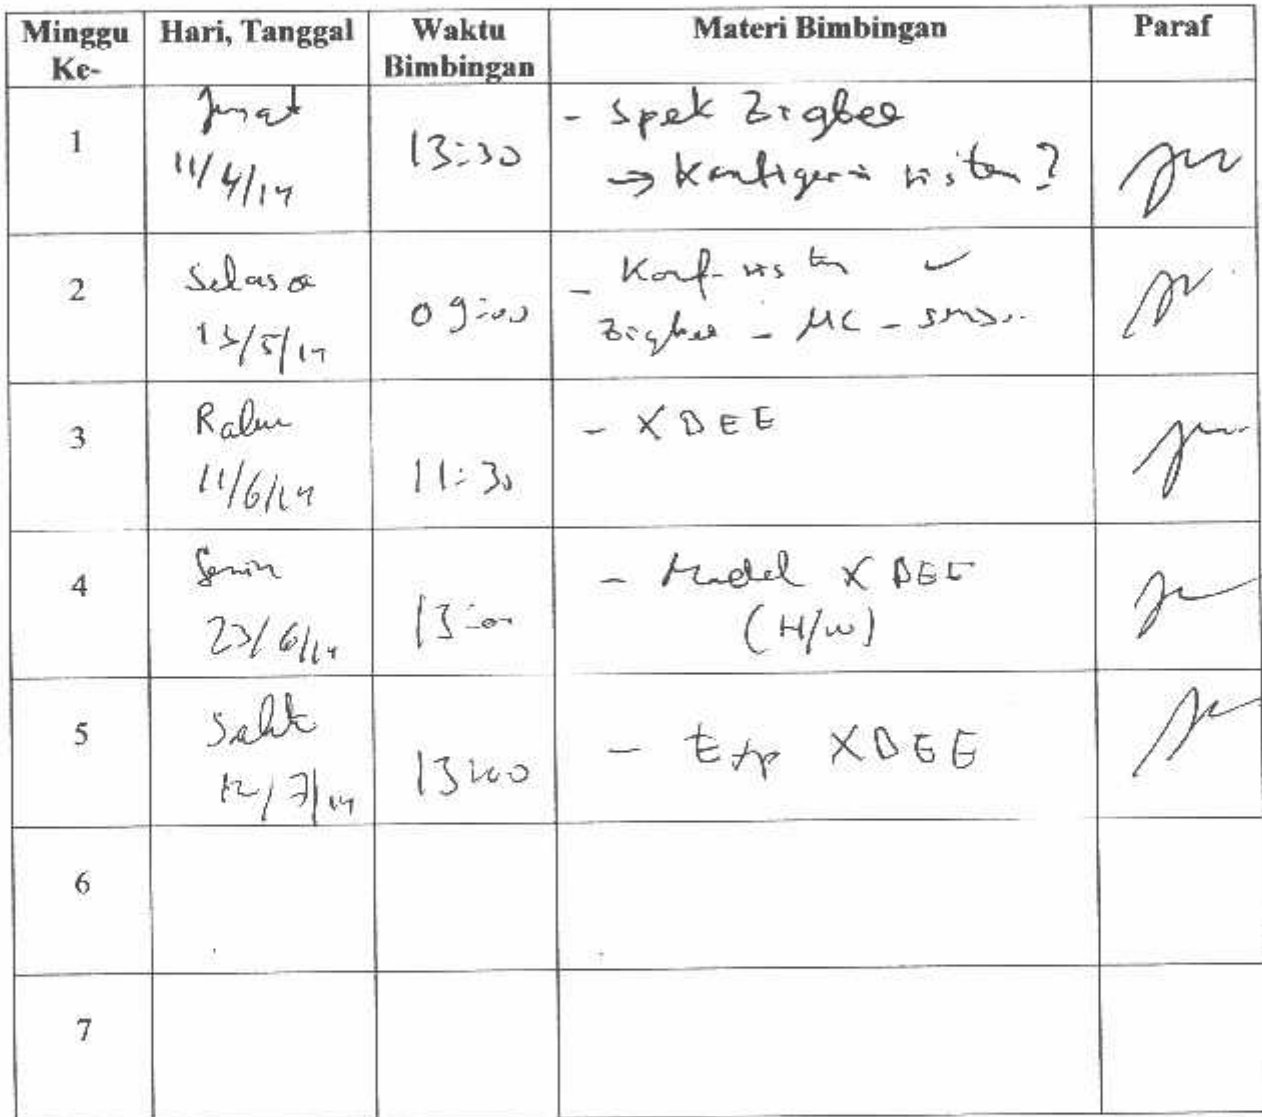 Minggu Ke- Hari, Tanggal Waktu Bimbingan Materi Bimbingan Paraf
1 Jumat 11/4/14 13:30 - Spek Zigbee
→ Konfigurasi sistem?
2 Selasa 13/5/14 09:00 - Konf. sistem ✓
Zigbee - MC - sensor
3 Rabu 11/6/14 11:30 - XBEE
4 Senin 23/6/14 13:00 - Model XBEE
(H/W)
5 Sabtu 12/7/14 13:00 - XBEE
6
7